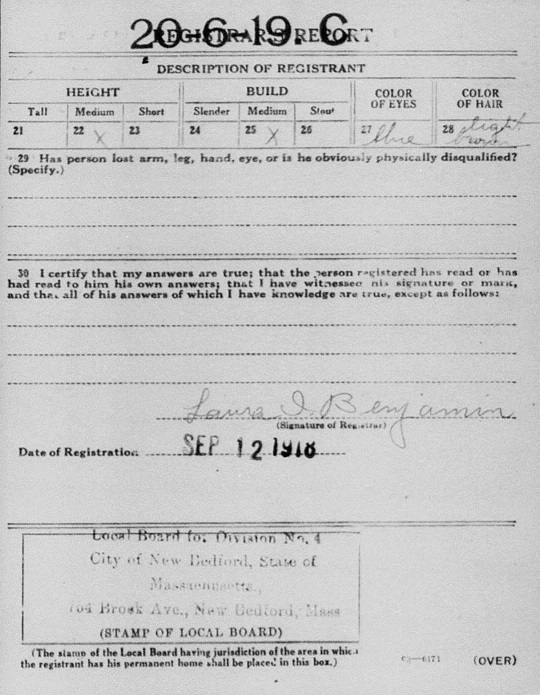 20-6-19. C
REGISTRAR'S REPORT
DESCRIPTION OF REGISTRANT
HEIGHT BUILD COLOR OF EYES COLOR OF HAIR
Tall Medium Short Slender Medium Stout
21 22 X 23 24 25 X 26 27 blue 28 light brown
29 Has person lost arm, leg, hand, eye, or is he obviously physically disqualified?
(Specify.)
30 I certify that my answers are true; that the person registered has read or has
had read to him his own answers; that I have witnessed his signature or mark,
and that all of his answers of which I have knowledge are true, except as follows:
Laura I. Benjamin
(Signature of Registrar)
Date of Registration SEP 12 1918
Local Board for Division No. 4
City of New Bedford, State of
Massachusetts.,
704 Brook Ave., New Bedford, Mass
(STAMP OF LOCAL BOARD)
(The stamp of the Local Board having jurisdiction of the area in which
the registrant has his permanent home shall be placed in this box.)
03-6171 (OVER)